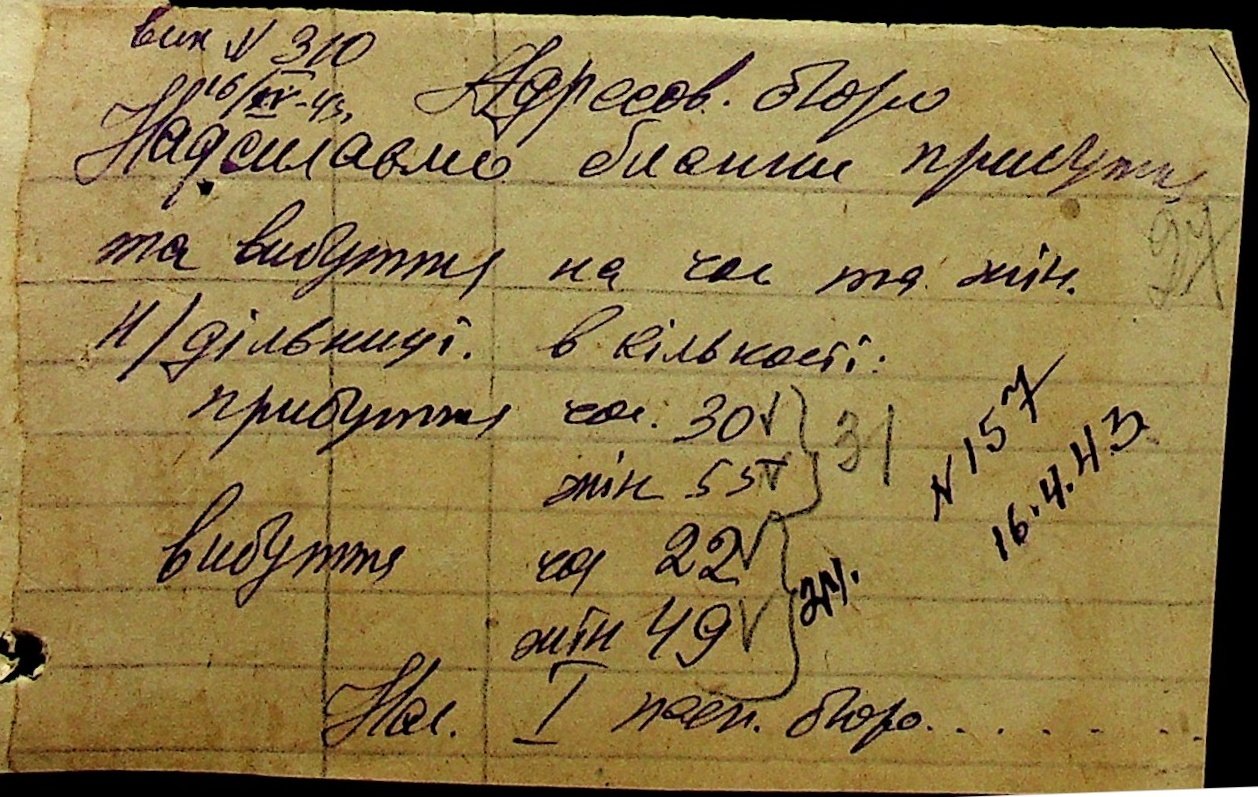 вих № 310
16/IV-43,
Адресов. бюро
Надсилаємо бланки прибуття
та вибуття на чол та жін.
н/дільниці. в кількості:
прибуття чол. 30
жін 55
31
вибуття чол 22
жін 49
№ 157
16.4.43.
97
Нач. I пасп. бюро......